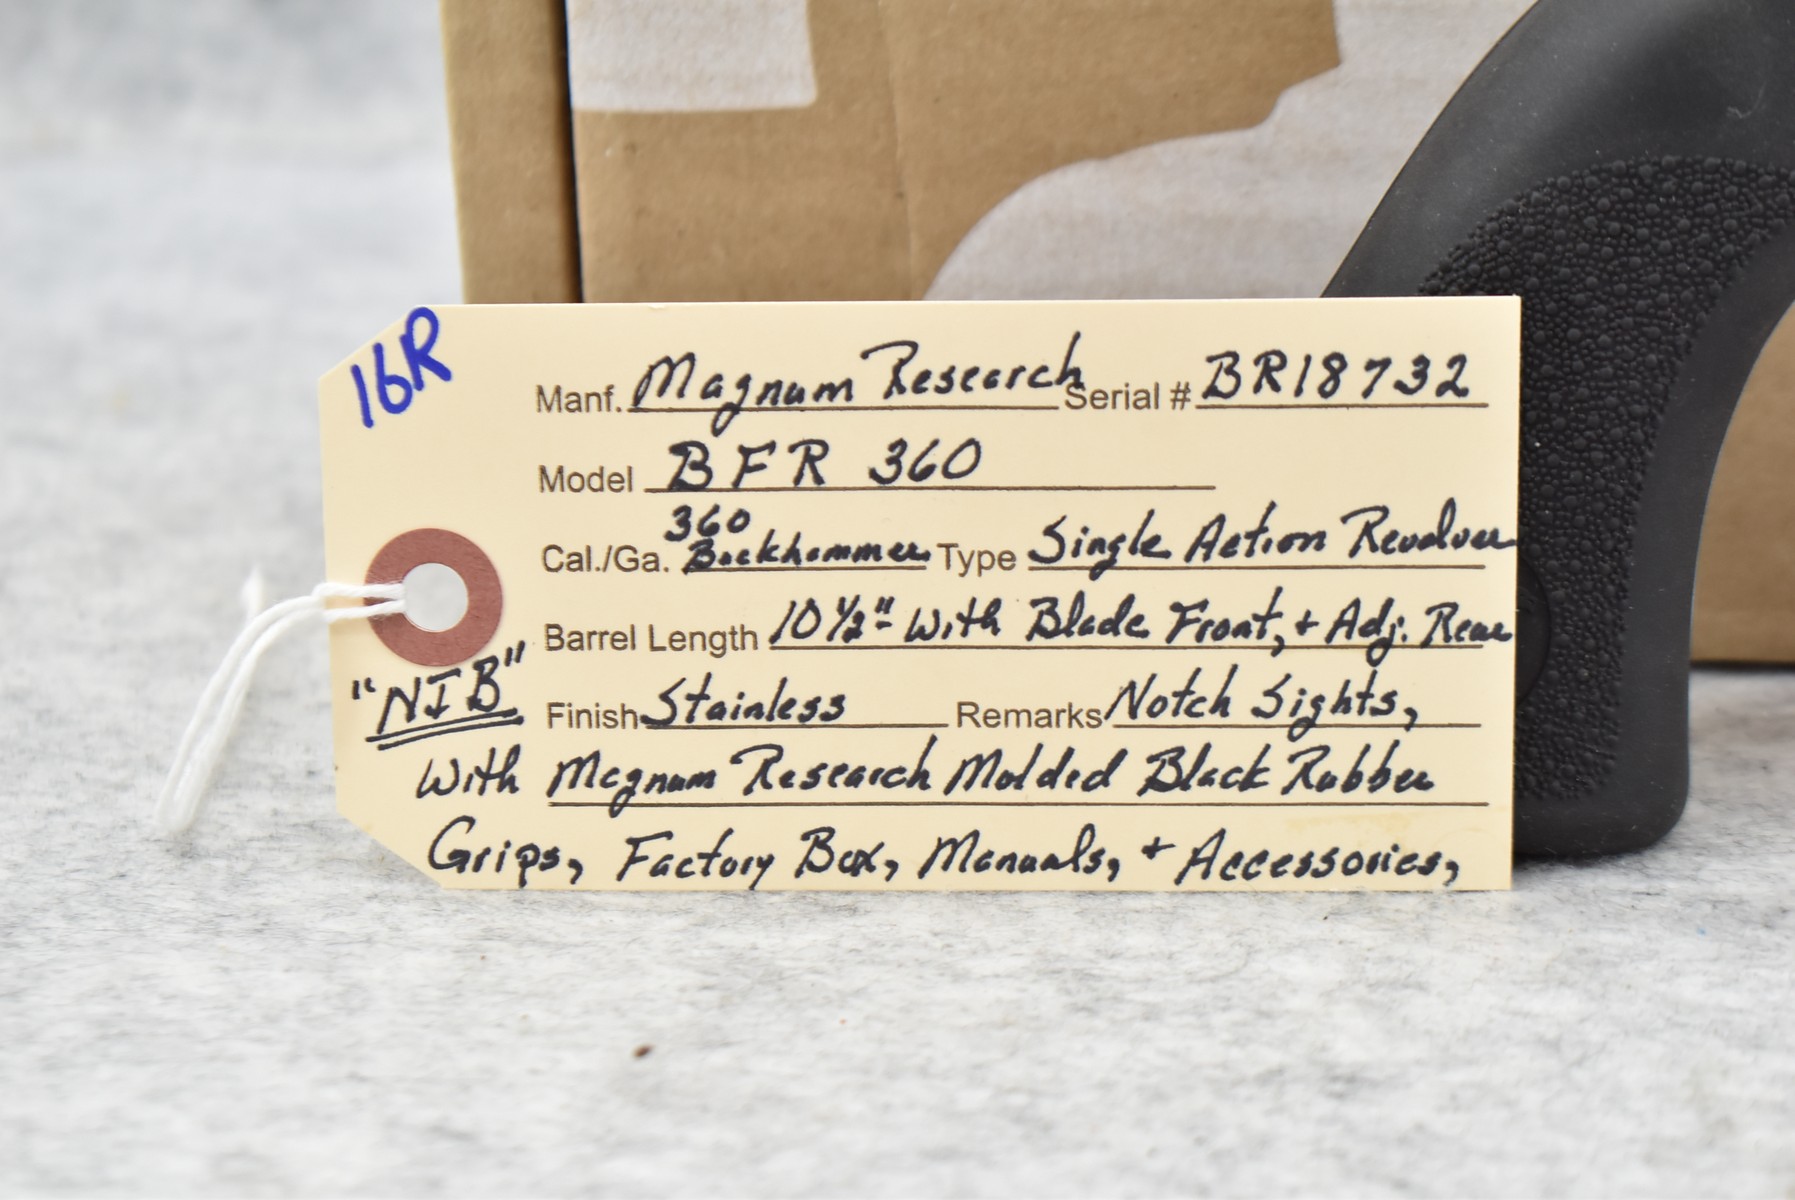 16R
Manf. Magnum Research Serial # BR18732
Model BFR 360
360
Cal./Ga. Buckhammer Type Single Action Revolver
Barrel Length 10 1/2" With Blade Front, + Adj. Rear
"NIB" Finish Stainless Remarks Notch Sights,
With Magnum Research Molded Black Rubber
Grips, Factory Box, Manuals, + Accessories,